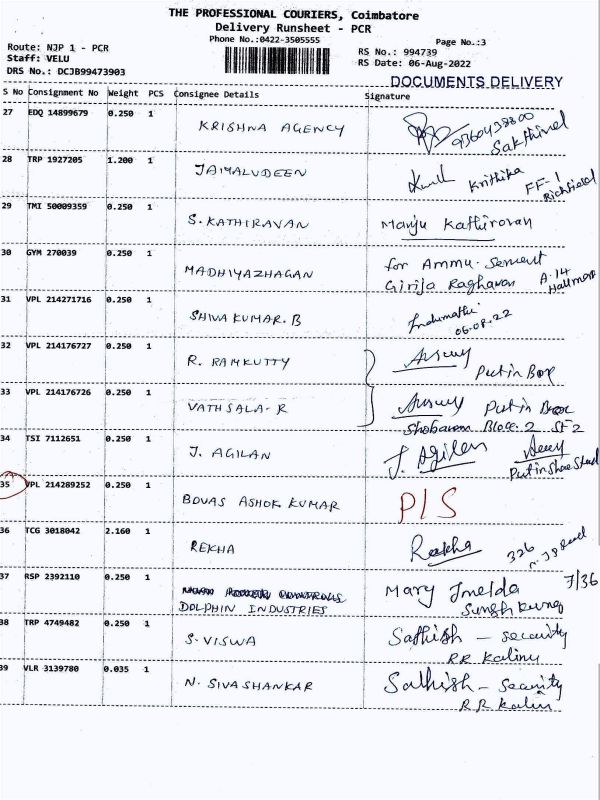 THE PROFESSIONAL COURIERS, Coimbatore
Delivery Runsheet - PCR
Phone No.:0422-3505555
Page No.:3
Route: NJP 1 - PCR
Staff: VELU
DRS No.: DCJB99473903
RS No.: 994739
RS Date: 06-Aug-2022
DOCUMENTS DELIVERY
S No Consignment No Weight PCS Consignee Details Signature
27 EDQ 14899679 0.250 1
KRISHNA AGENCY
9360438800
Sakthivel
28 TRP 1927205 1.200 1
JAIMALUDEEN
Krithika FF-1
Richfield
29 TMI 50009359 0.250 1
S. KATHIRAVAN Manju Kathirovan
30 GYM 270039 0.250 1
MADHIYAZHAGAN for Ammu
Girija Raghavan A-14
31 VPL 214271716 0.250 1
SHIVA KUMAR. B Indumathi
06.08.22
32 VPL 214176727 0.250 1
R. RAMKUTTY
Put in Box
33 VPL 214176726 0.250 1
VATHSALA- R Put in Box
Block-2 SF2
34 TSI 7112651 0.250 1
J. AGILAN J. Agilan
Put in Shoe Stand
35 VPL 214289252 0.250 1
BOVAS ASHOK KUMAR P/S
36 TCG 3018042 2.160 1
REKHA Rekha 326
37 RSP 2392110 0.250 1
DOLPHIN INDUSTRIES Mary Imelda 7/36
38 TRP 4749482 0.250 1
S. VISWA Sathish - security
RR Kalinv
39 VLR 3139780 0.035 1
N. SIVASHANKAR Sathish - Security
RR Kalin